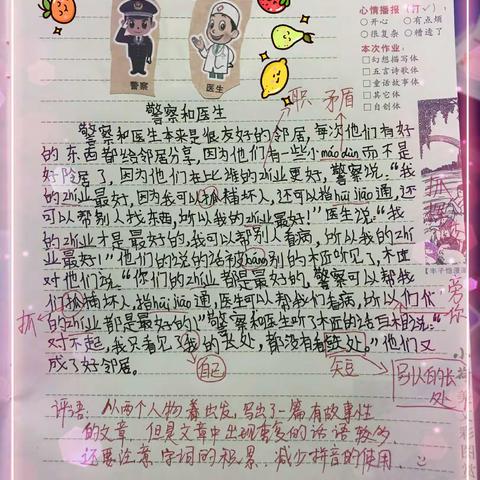 心情播报(打✓):
○开心 ○有点烦
○很复杂 ○糟透了
本次作业:
□幻想描写体
□五言诗歌体
□童话故事体
□其它体
□自创体
警察
医生
职 矛盾
警察和医生
警察和医生本来是很友好的邻居,每次他们有好
的东西都给邻居分享,因为他们有一些小máo dùn而不是
好邻居了,因为他们在比谁的zhí业更好,警察说:“我
的zhí业最好,因为我可以孤捕坏人,还可以指huī jiāo通,还
可以帮别人找东西,所以我的zhí业最好!”医生说:“我
的zhí业才是最好的,我可以帮别人看病,所以我的zhí
业最好!”他们的说的话被báng别的木匠听见了,木匠
对他们说:“你们的zhí业都是最好的,警察可以帮我
们孤捕坏人,指huī jiāo通,医生可以帮我们看病,所以你们
的zhí业都是最好的!”警察和医生听了木匠的话互相说:“
对不起,我只看见了我的长处,都没有看短处。”他们又
成了好邻居。
抓
抓
旁
你
自己
矢豆
别人的长
处
评语:从两个人物着出发,写出了一篇有故事性
的文章,但是文章中出现重复的话语较多,
还要注意字词的积累,减少拼音的使用。